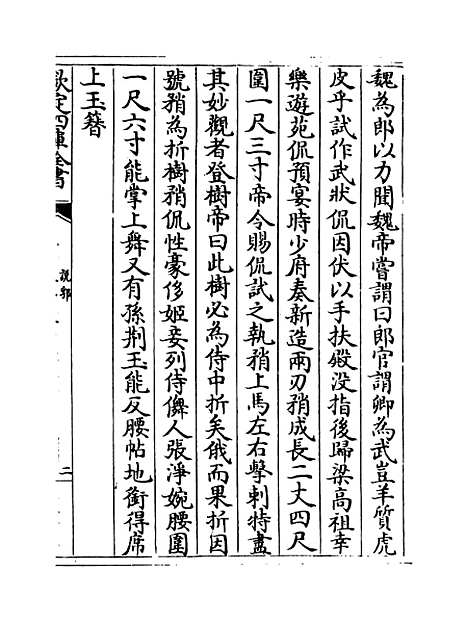 魏為郎以力聞魏帝嘗謂曰郎官謂卿為武豈羊質虎
皮乎試作武狀侃因伏以手扶殿没指後歸梁高祖幸
樂遊苑侃預宴時少府奏新造兩刃矟成長二丈四尺
圍一尺三寸帝令賜侃試之執矟上馬左右擊刺特盡
其妙觀者登樹帝曰此樹必為侍中折矣俄而果折因
號矟為折樹矟侃性豪侈姬妾列侍儛人張淨婉腰圍
一尺六寸能掌上舞又有孫荆玉能反腰帖地銜得席
上玉簪
欽定四庫全書
說郛
二